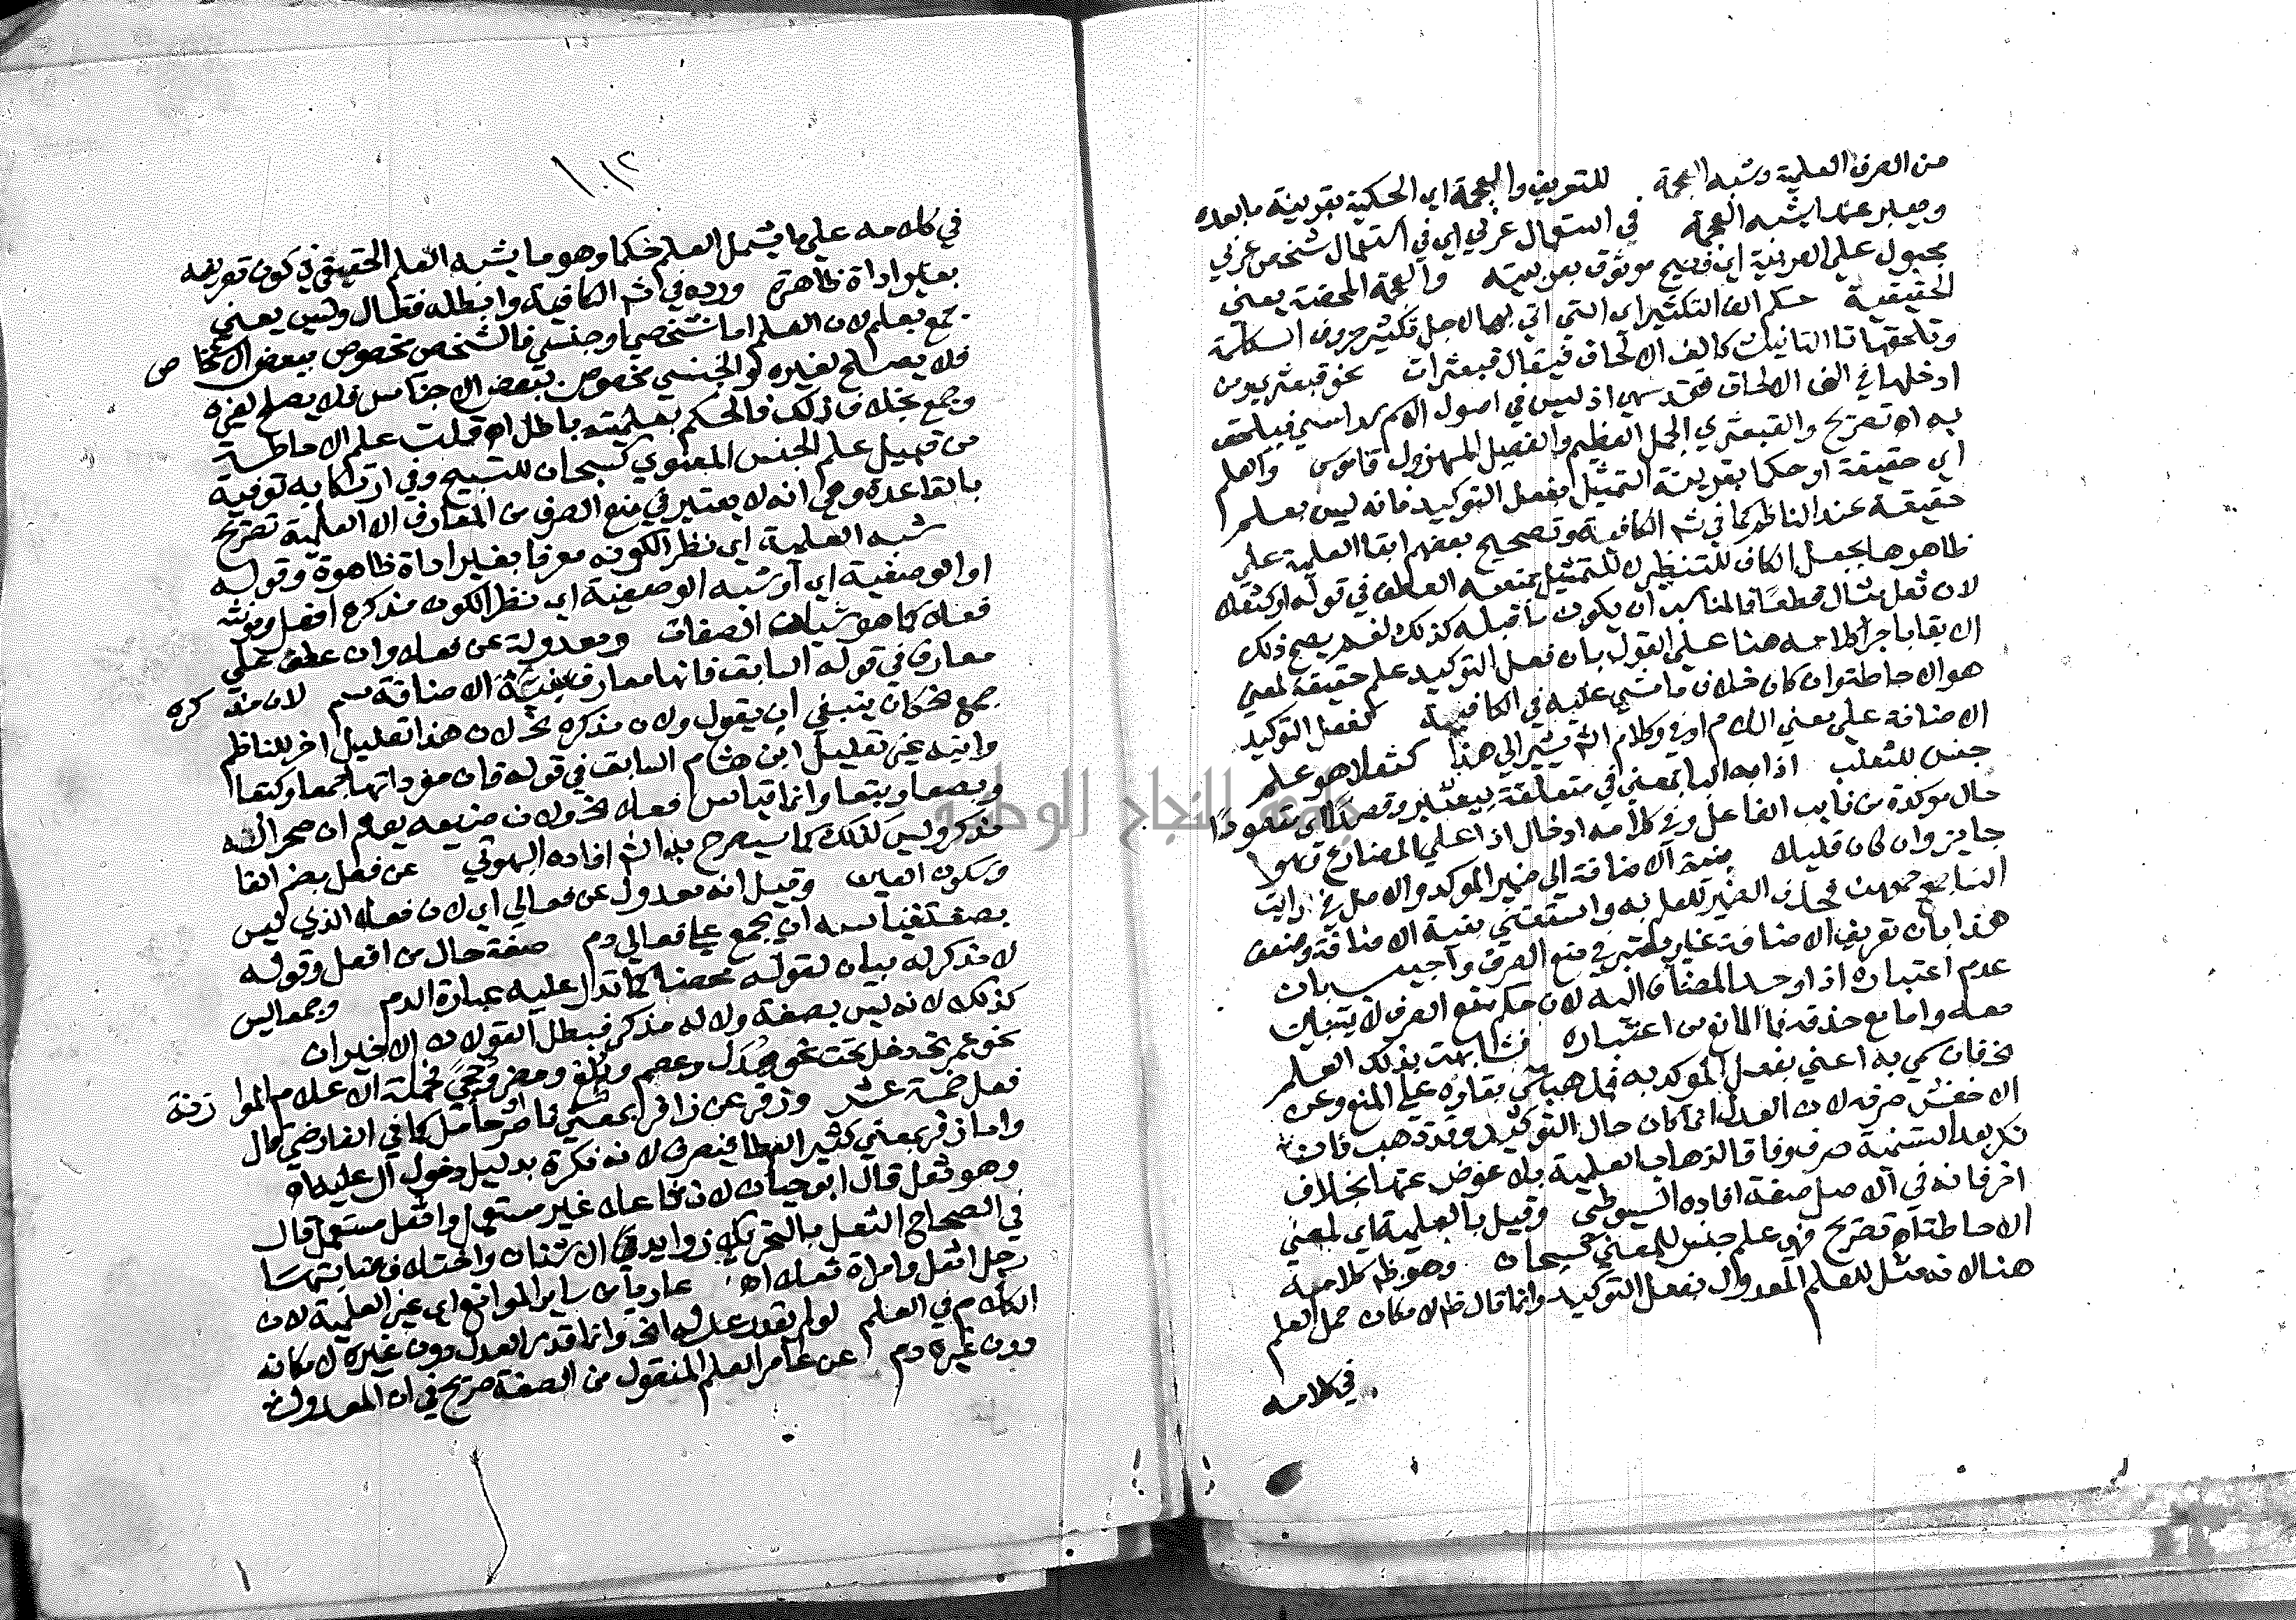 من الصرف العلمية وشبه العجمة للتعريف والعجمة اي الحكمية بقرينة ما بعده
ويعبر عنها بشبه العجمة في استعمال عربي اي في استعمال شخص عربي
مجبول على العربية اي فصيح موثوق بعربيته والعجمة المحضة يعني
الحقيقية حكم الف التكثير اي التي اتي بها لاجل تكثير حروف الكلمة
وتلحقها تا التانيث كالف الالحاق فيقال قبعثرات نحو قبعثري ومن
ادخلها في الف الالحاق فقد سهى اذ ليس في اصول الاسم سداسي فيلحق
به اه تصريح والقبعثري الجمل العظيم والفصيل المهزول قاموس والعلم
اي حقيقة او حكما بقرينة التمثيل بفعل التوكيد فانه ليس بعلم
حقيقة عند الناظم كما في شم الكافية وتصحيح بعضهم ابقا العلمية على
ظاهرها بجعل الكاف للتنظير لا للتمثيل يمنعه العطف في قوله او كثعلا
لان ثعل مثال قطعا فالمناسب ان يكون ما قبله كذلك نعم يصح ذلك
الابقا باجرا كلامه هنا على القول بان فعل التوكيد علم حقيقة لمعنى
هو الاحاطة وان كان خلاف ما مشى عليه في الكافية كفعل التوكيد
الاضافة على معنى اللام او في وكلام الشم يشير الى هذا كثعلا هو علم
جنس للثعلب اذا به البا بمعنى في متعلقة بيعتبر وقصدا اي مقصودا
حال موكدة من نايب الفاعل وفي كلامه ادخال اذا على المضارع وهو
جايز وان كان قليلا بنية الاضافة الى ضمير الموكد والاصل في رايت
النسا جمع جمعهن فحذف الضمير للعلم به واستغني بنية الاضافة وضعف
هذا بان تعريف الاضافة غير معتبر في منع الصرف واجيب بان
عدم اعتباره اذا وجد المضاف اليه لان حكم منع الصرف لا يتبين
معه واما مع حذفه فما المانع من اعتباره فشابهت بذلك العلم
نخ فان سمي به اعني بفعل الموكد به فمذهب بقاؤه على المنع وعن
الاخفش صرفه لان العدل انما كان حال التوكيد وقد ذهب فان
نكر بعد التسمية صرف وفاقا لذهاب العلمية بلا عوض عنها بخلاف
اخر فانه في الاصل صفة افاده السيوطي وقيل بالعلمية اي لمعنى
الاحاطة اه تصريح فهي علم جنس للمعنى كسبحان وهو ظم كلامه
هنا لانه مثل للعلم المعدول بفعل التوكيد وانما قال ظم لامكان حمل العلم
في كلامه
١٠١٢
في كلامه على ما يشمل العلم حكما وهو ما يشبه العلم الحقيقي في كون تعريفه
بغير اداة ظاهرة ورده في شم الكافية وابطله فقال وليس يعني
جمع بعلم لان العلم اما شخصي او جنسي فالشخصي مخصوص ببعض الاشخاص
فلا يصلح لغيره والجنسي مخصوص ببعض الاجناس فلا يصلح لغيره
وجمع بخلاف ذلك فالحكم بعلميته باطل اه قلت علم الاحاطة
من قبيل علم الجنس المعنوي كسبحان للتسبيح وفي ارتكابه توفية
بالقاعدة وهي انه لا يعتبر في منع الصرف من المعارف الا العلمية تصريح
شبه العلمية اي نظرا لكونه معرفا بغير اداة ظاهرة وقوله
او الوصفية اي او شبه الوصفية اي نظرا لكون مذكره افعل ومونثه
فعلا كما هو شان الصفات ومعدولة عن فعلا وان عطف على
معارف في قوله السابق فانها معارف بنية الاضافة سم لان مذكره
جمع نخ كان ينبغي ان يقول ولان مذكره نخ لان هذا تعليل اخر للناظم
وابنه غير تعليل ابن هشام السابق في قوله فان مفرداتها جمعا وكتعا
وبصعا وبتعا وانما قياس فعلا نخ ولان صنيعه يوهم ان صحرا له
مذكر وليس كذلك كما سيصرح به الشم افاده البهوتي عن فعل بضم الفا
وسكون العين وقيل انه معدول عن فعالي اي لان فعلا الذي ليس
بصفة قياسه ان يجمع على فعالي دم صفة حال من افعل وقوله
لا مذكر له بيان لقوله محضا كما تدل عليه عبارة الدم وجمعا ليس
كذلك لانه ليس بصفة ولا له مذكر فبطل القولان الاخيران
نحو عمر نخ دخل تحت نحو هدل وعصم وبلع ومضر وجحى فجملة الاعلام الموازنة
فعل خمسة عشر وزفر عن زافر بمعنى ناصر حامل كما في الفارضي قال
واما زفر بمعنى كثير العطا فينصرف لانه نكرة بدليل دخول ال عليه اه
وهو ثعل قال ابو حيان لان فاعلا غير مستعمل وافعل مستعمل قال
في الصحاح الثعل بالتحريك زوايد في الاسنان واختلاف منابتها
رجل اثعل وامراة ثعلا اه عاريا من ساير الموانع اي غير العلمية لان
الكلام في العلم لو لم يقدر عدله نخ وانما قدر العدل دون غيره لامكانه
دون غيره دم عن عامر العلم المنقول من الصفة صريح في ان المعدول